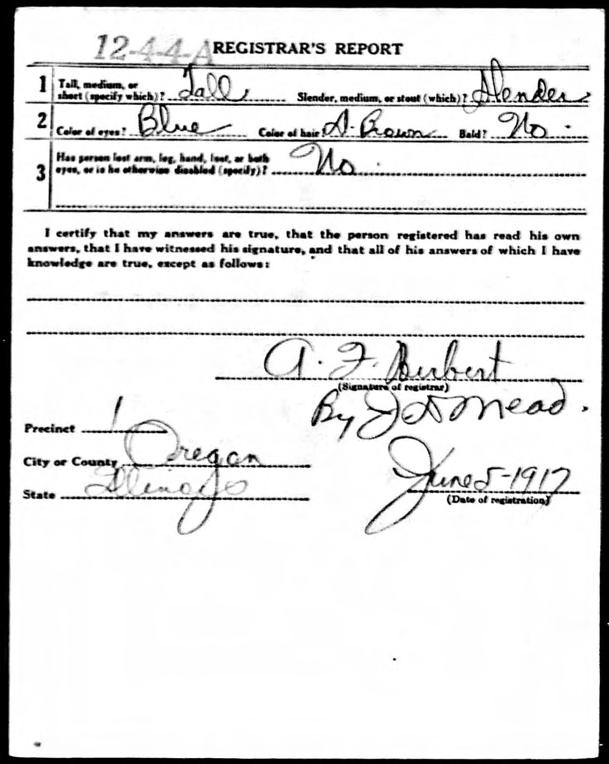 12-4-4-A REGISTRAR'S REPORT
1 Tall, medium, or short (specify which)? Tall Slender, medium, or stout (which)? Slender
2 Color of eyes? Blue Color of hair D. Brown Bald? No
3 Has person lost arm, leg, hand, foot, or both
eyes, or is he otherwise disabled (specify)? No
I certify that my answers are true, that the person registered has read his own
answers, that I have witnessed his signature, and that all of his answers of which I have
knowledge are true, except as follows:
A. F. Herbert
(Signature of registrar)
By J D Mead.
Precinct 1
City or County Oregon
State Illinois
June 5-1917
(Date of registration)